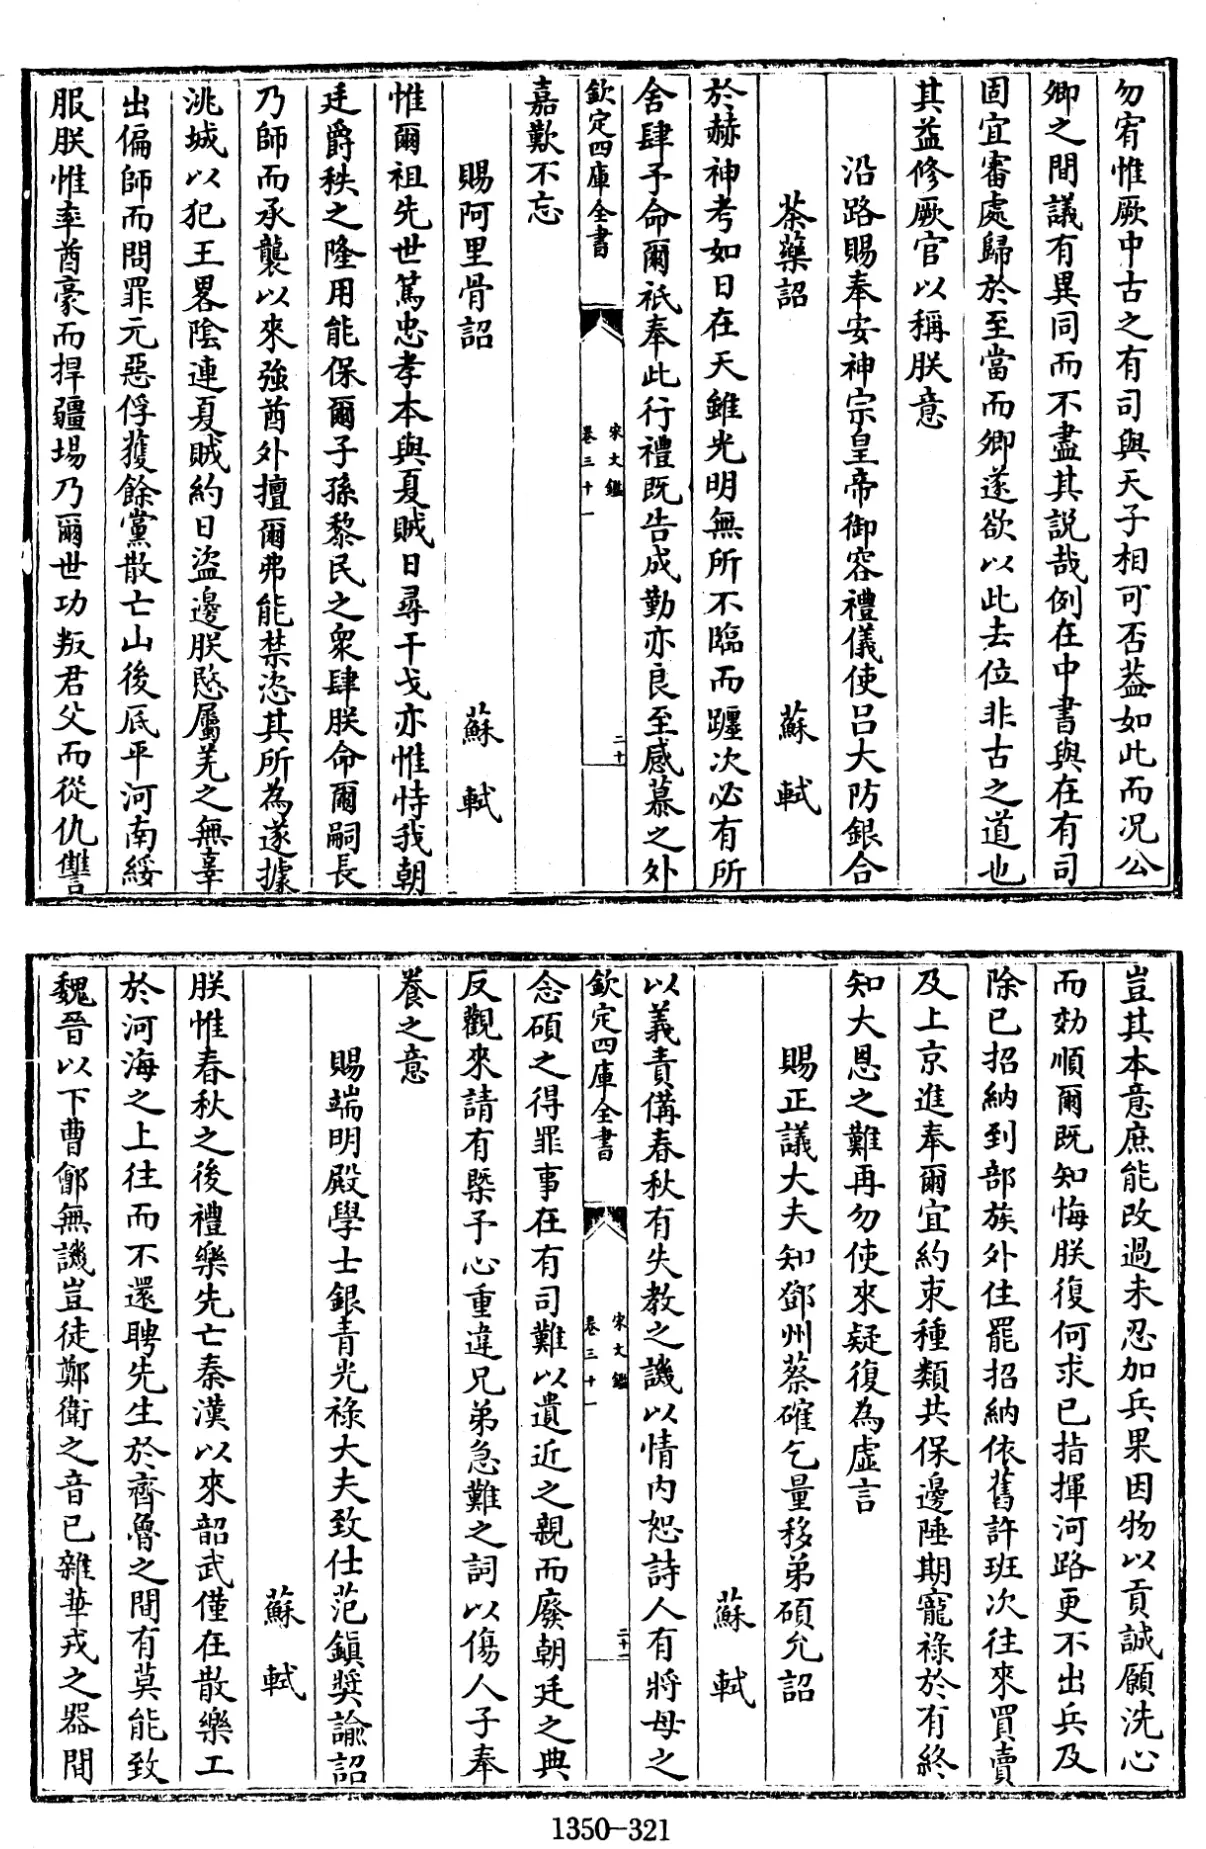 勿宥惟厥中古之有司與天子相可否葢如此而况公
卿之間議有異同而不盡其説哉例在中書與在有司
固宜審處歸於至當而卿遂欲以此去位非古之道也
其益修厥官以稱朕意
沿路賜奉安神宗皇帝御容禮儀使吕大防銀合
茶藥詔　蘇軾
於赫神考如日在天雖光明無所不臨而躔次必有所
舍肆予命爾祇奉此行禮既告成勤亦良至感慕之外
欽定四庫全書　宋文鑑　卷三十一　二十
嘉歎不忘
賜阿里骨詔　蘇軾
惟爾祖先世篤忠孝本與夏賊日尋干戈亦惟恃我朝
廷爵秩之隆用能保爾子孫黎民之衆肆朕命爾嗣長
乃師而承襲以來強酋外擅爾弗能禁恣其所為遂據
洮城以犯王畧陰連夏賊約日盜邊朕愍屬羌之無辜
出偏師而問罪元惡俘獲餘黨散亡山後底平河南綏
服朕惟率酋豪而捍疆埸乃爾世功叛君父而從仇讐
豈其本意庶能改過未忍加兵果因物以貢誠願洗心
而効順爾既知悔朕復何求已指揮河路更不出兵及
除已招納到部族外住罷招納依舊許班次往來買賣
及上京進奉爾宜約束種類共保邊陲期寵祿於有終
知大恩之難再勿使來疑復為虛言
賜正議大夫知鄧州蔡確乞量移弟碩允詔
蘇軾
以義責備春秋有失教之譏以情内恕詩人有將母之
欽定四庫全書　宋文鑑　卷三十一　二十一
念碩之得罪事在有司難以遺近之親而廢朝廷之典
反觀來請有槩予心重違兄弟急難之詞以傷人子奉
養之意
賜端明殿學士銀青光祿大夫致仕范鎮奬諭詔
蘇軾
朕惟春秋之後禮樂先亡秦漢以來韶武僅在散樂工
於河海之上往而不還聘先生於齊魯之間有莫能致
魏晉以下曹鄶無譏豈徒鄭衛之音已雜華戎之器間
1350-321